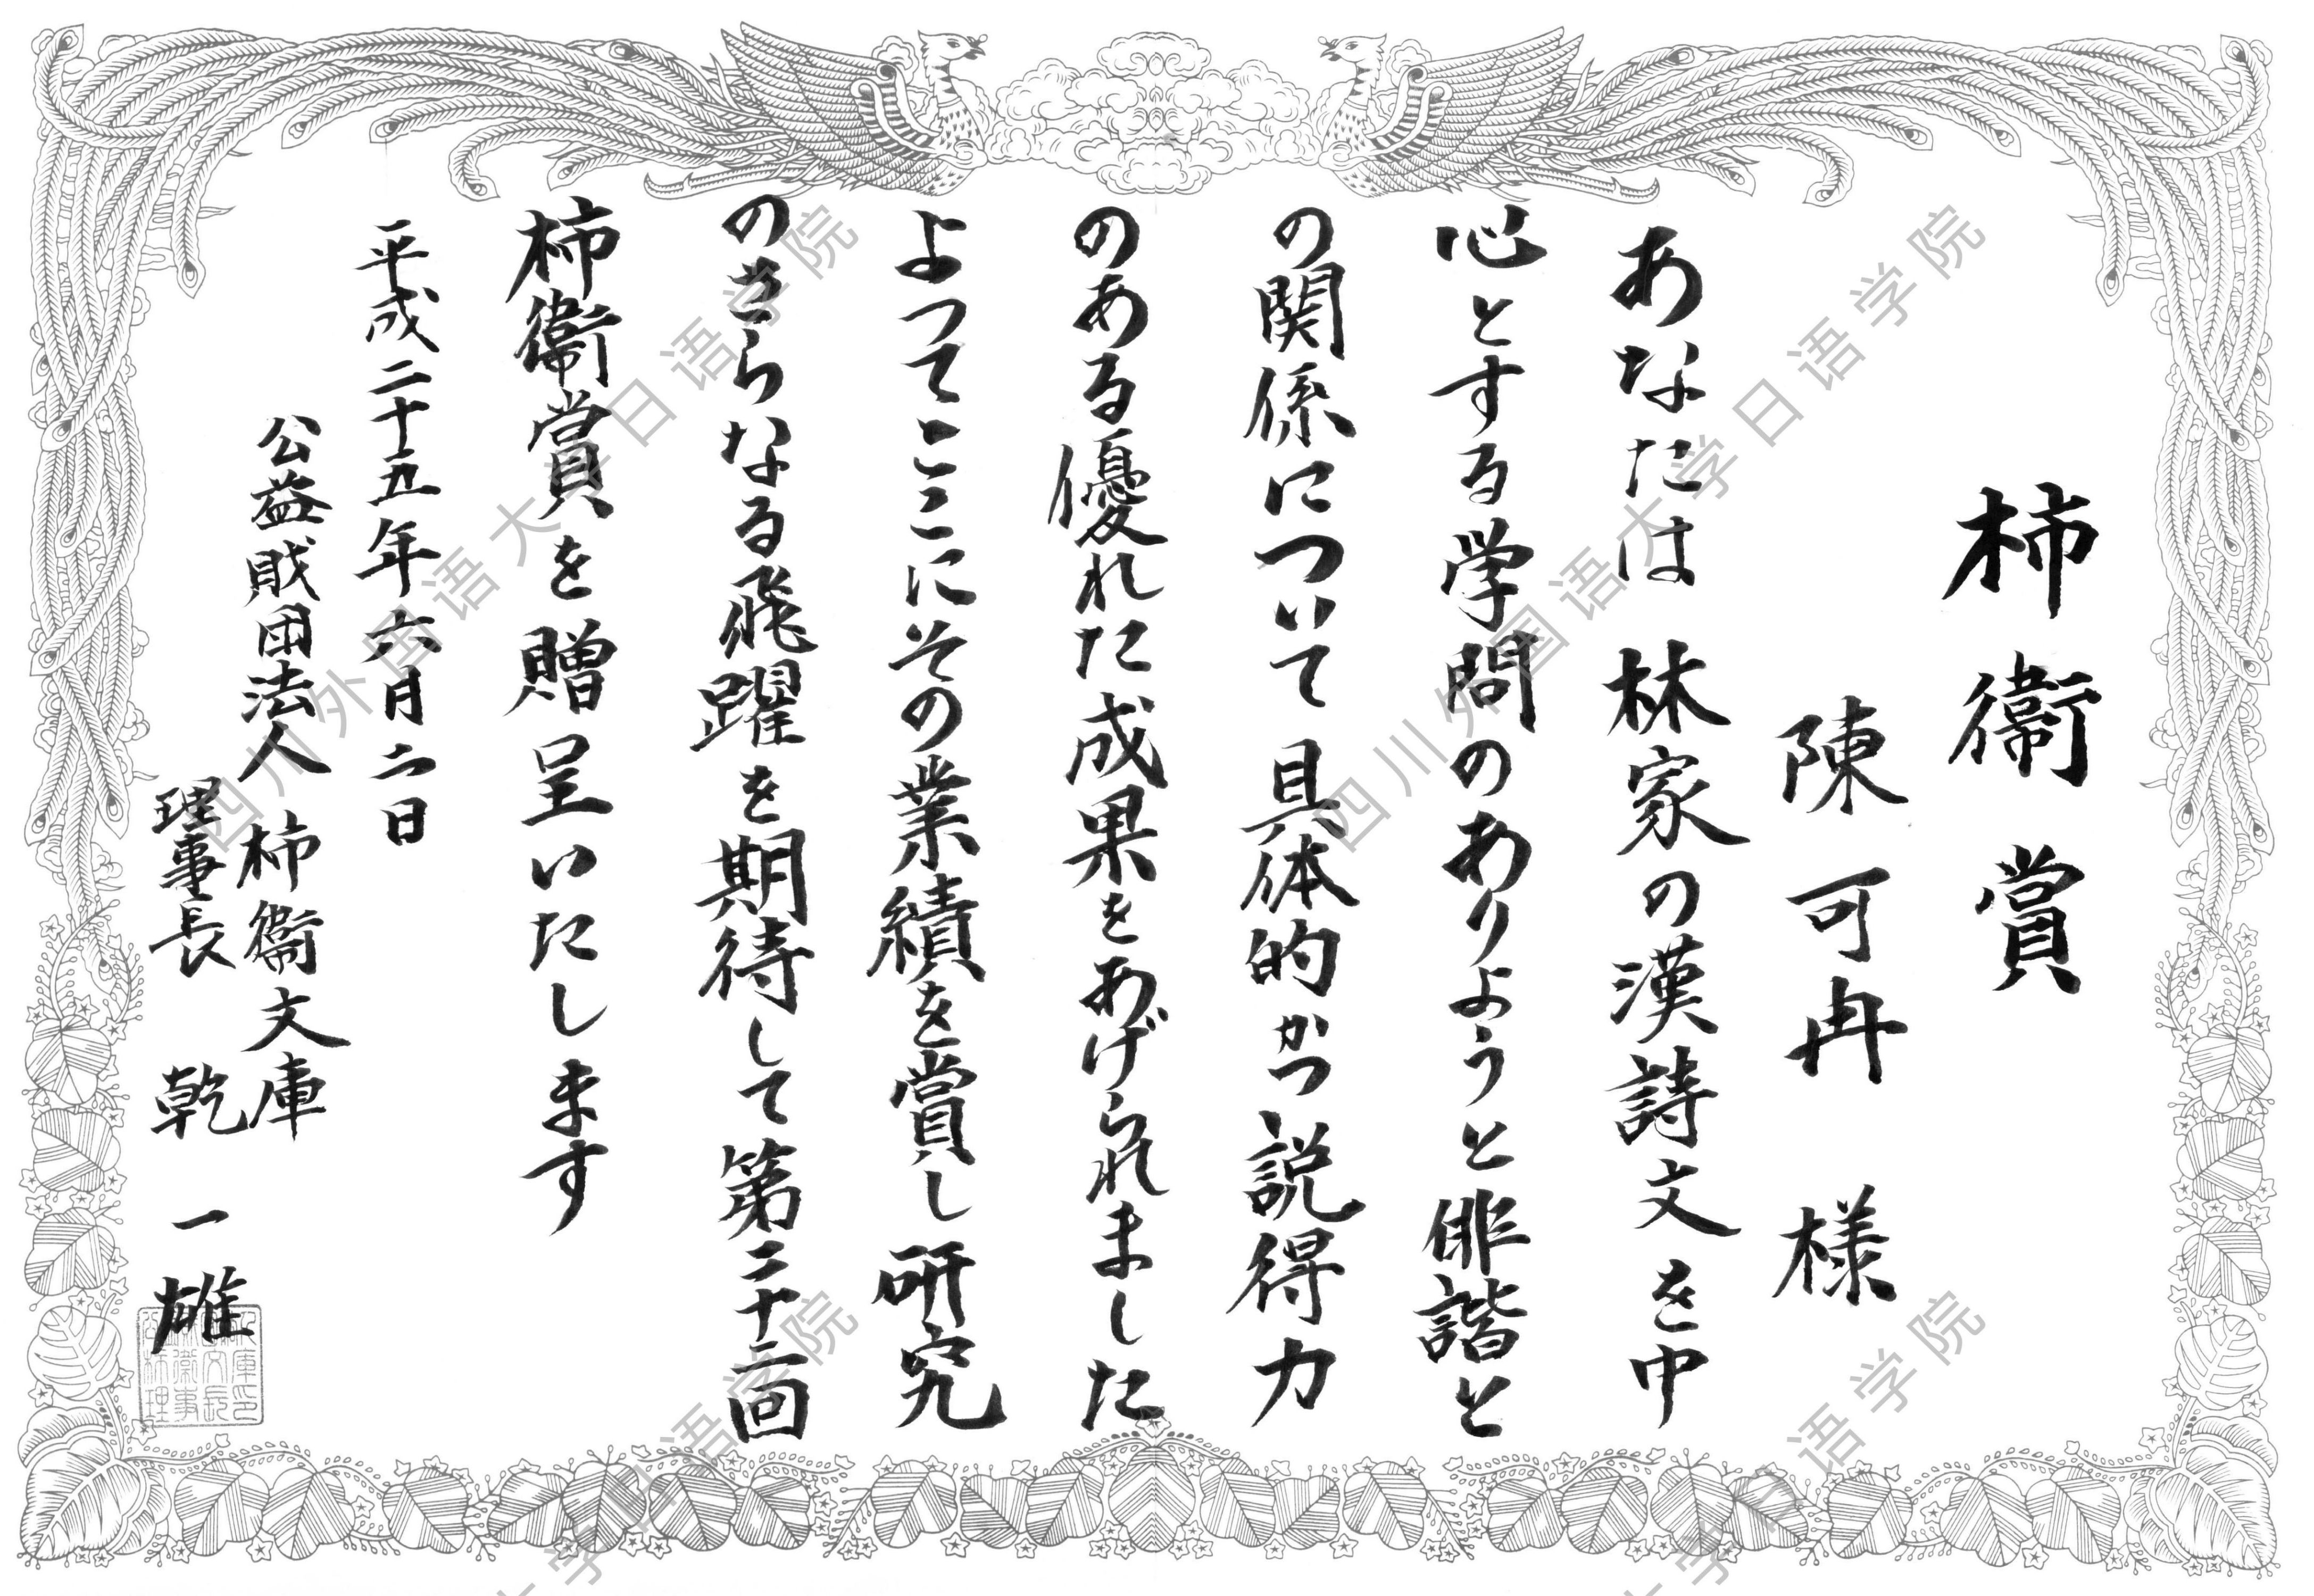 柿衞賞
陳可冉 様
あなたは林家の漢詩文を中
心とする学問のありようと俳諧と
の関係について具体的かつ説得力
のある優れた成果をあげられました
よってここにその業績を賞し研究
のさらなる飛躍を期待して第二十二回
柿衞賞を贈呈いたします
平成二十五年六月二日
公益財団法人 柿衞文庫
理事長 乾 一雄
四川外国语大学日语学院
四川外国语大学日语学院